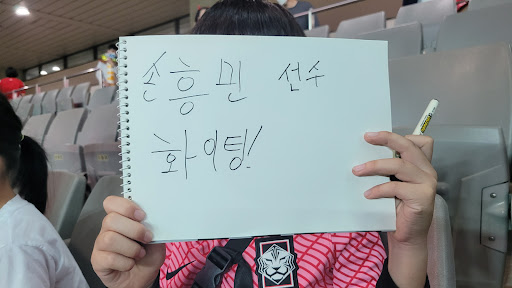 손흥민 선수
화이팅!